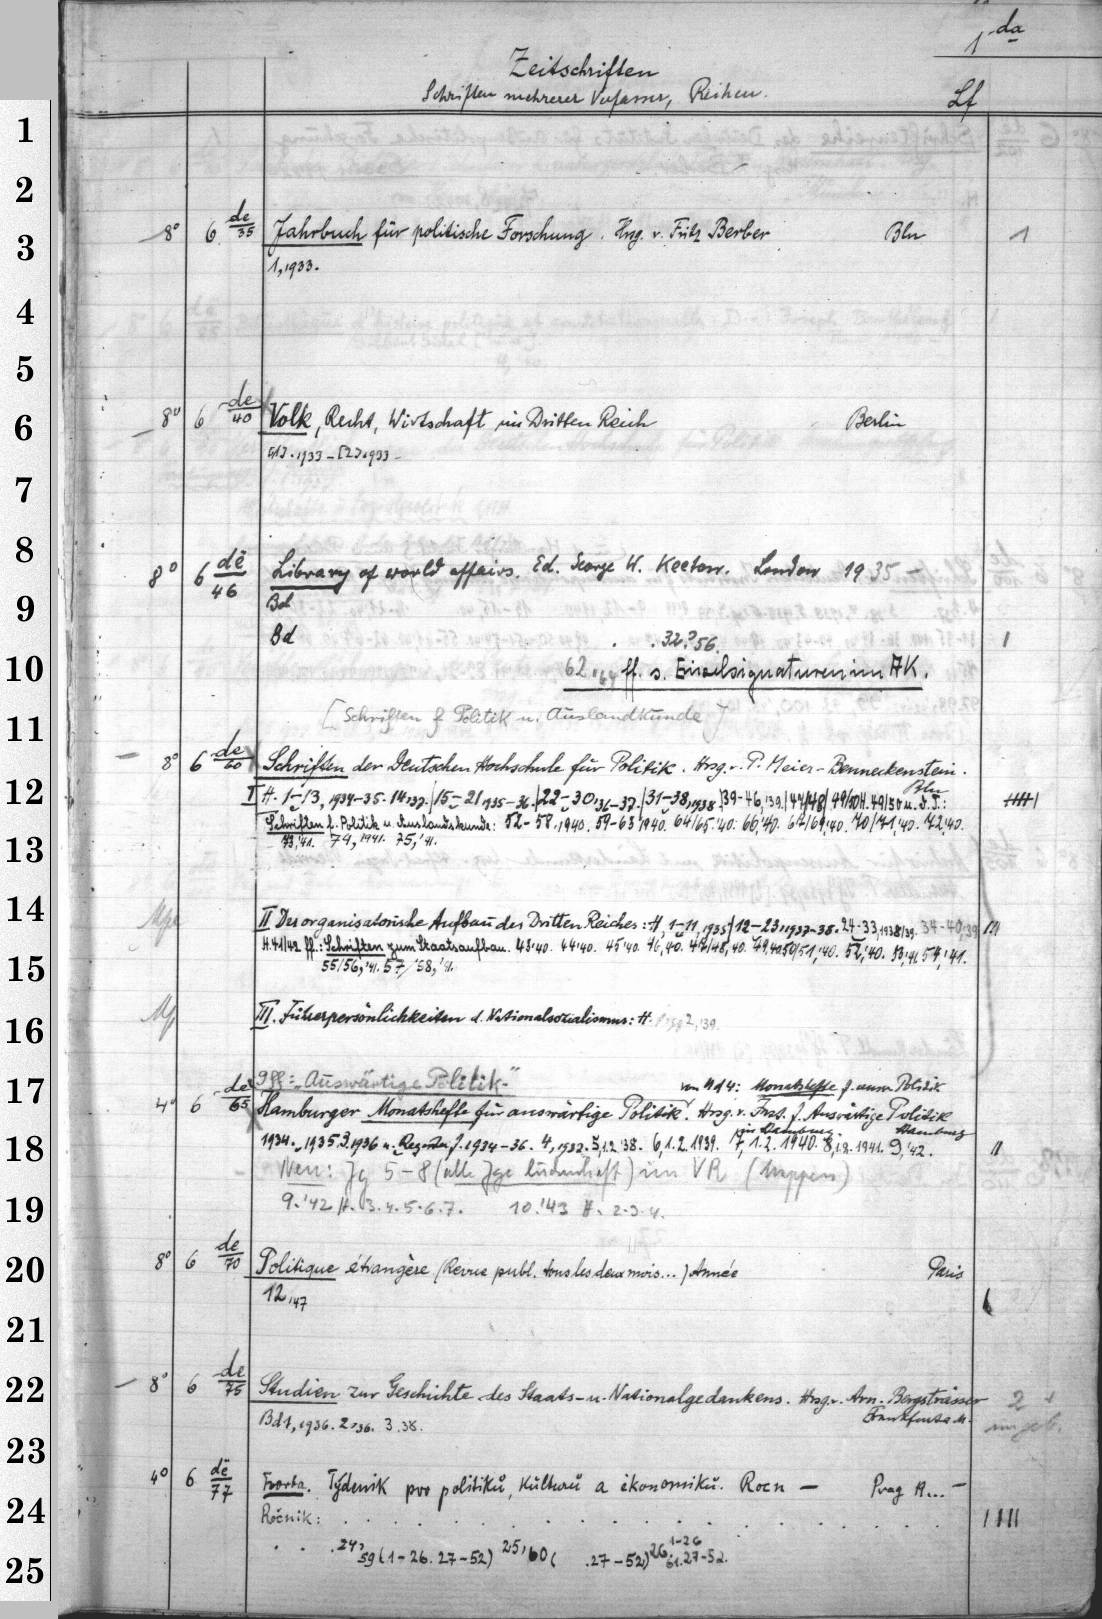 1 da
Zeitschriften
Schriften mehrerer Verfasser, Reihen.
Lf
1
2
8° 6 de/35 Jahrbuch für politische Forschung. Hrsg. v. Fritz Berber Bln 1
3
1, 1933.
4
5
8° 6 de/40 Volk, Recht, Wirtschaft im Dritten Reich Berlin
6
[1]. 1933 - [2]. 1933 -
7
8
8° 6 de/46 Library of world affairs. Ed. George W. Keeton. London 1935 -
9
Bd
Bd . . 32? 56. 1
10
62, 64 ff. s. Einzelsignaturen im AK.
11
[Schriften f Politik u. Auslandkunde]
8° 6 de/60 Schriften der Deutschen Hochschule für Politik. Hrsg. v. P. Meier-Benneckenstein.
Bln
12
I H. 1-13, 1934-35. 14, 37. | 15-21, 1935-36. | 22-30, 36-37. | 31-38, 1938 | 39-46, 139. | 47/48 | 49/50 H. 49/50 u. d. T.:
Schriften f. Politik u. Auslandskunde: 52-58, 1940. 59-63 1940. 64/65 '40. 66, 40. 67/69, 40. 70/71, '40. 72, 40.
13
73, '41. 74, 1941. 75, '41.
14
II Der organisatorische Aufbau des Dritten Reiches: H, 1-11, 1935 | 12-23, 1937-38. 24-33, 1938/39. 34-40, 39 III
H. 41/42 ff.: Schriften zum Staatsaufbau. 43 '40. 44 '40. 45 '40. 46, 40. 47/48, 40. 49, 40 50/51, '40. 52, '40. 53, '41 54, '41.
15
55/56, '41. 57/58, '41.
16
III. Führerpersönlichkeiten d. Nationalsozialismus: H.
17
9 ff = „Auswärtige Politik"
von 4 1 4: Monatshefte f. ausw. Politik
4° 6 de/65 Hamburger Monatshefte für auswärtige Politik. Hrsg. v. Inst. f. Auswärtige Politik
in Hamburg. Hamburg
18
1934. 1935 3. 1936 u. Register f. 1934-36. 4, 1937. 5, 1.2 '38. 6, 1.2. 1939. 7, 1.2. 1940. 8, 1.2. 1941. 9, '42. II
Neu: Jg 5-8 (alle Jge lückenhaft) im VR (Mappen)
19
9. '42 H. 3. 4. 5. 6. 7. 10. '43 H. 2. 3. 4.
20
8° 6 de/70 Politique étrangère (Revue publ. tous les deux mois...) Année Paris
12, 47
21
22
8° 6 de/75 Studien zur Geschichte des Staats- u. Nationalgedankens. Hrsg. v. Arn. Bergsträsser 2 +
Bd 1, 1936. 2, 36. 3. 38. Frankfurt a. M.
23
4° 6 de/77 Tvorba. Týdeník pro politiků, kulturů a ekonomiků. Rocn — Prag A... -
24
Ročnik: IIII
25
. . . 24, 59 (1-26. 27-52) 25, 60 ( . 27-52) 26, 61. 1-26 27-52.